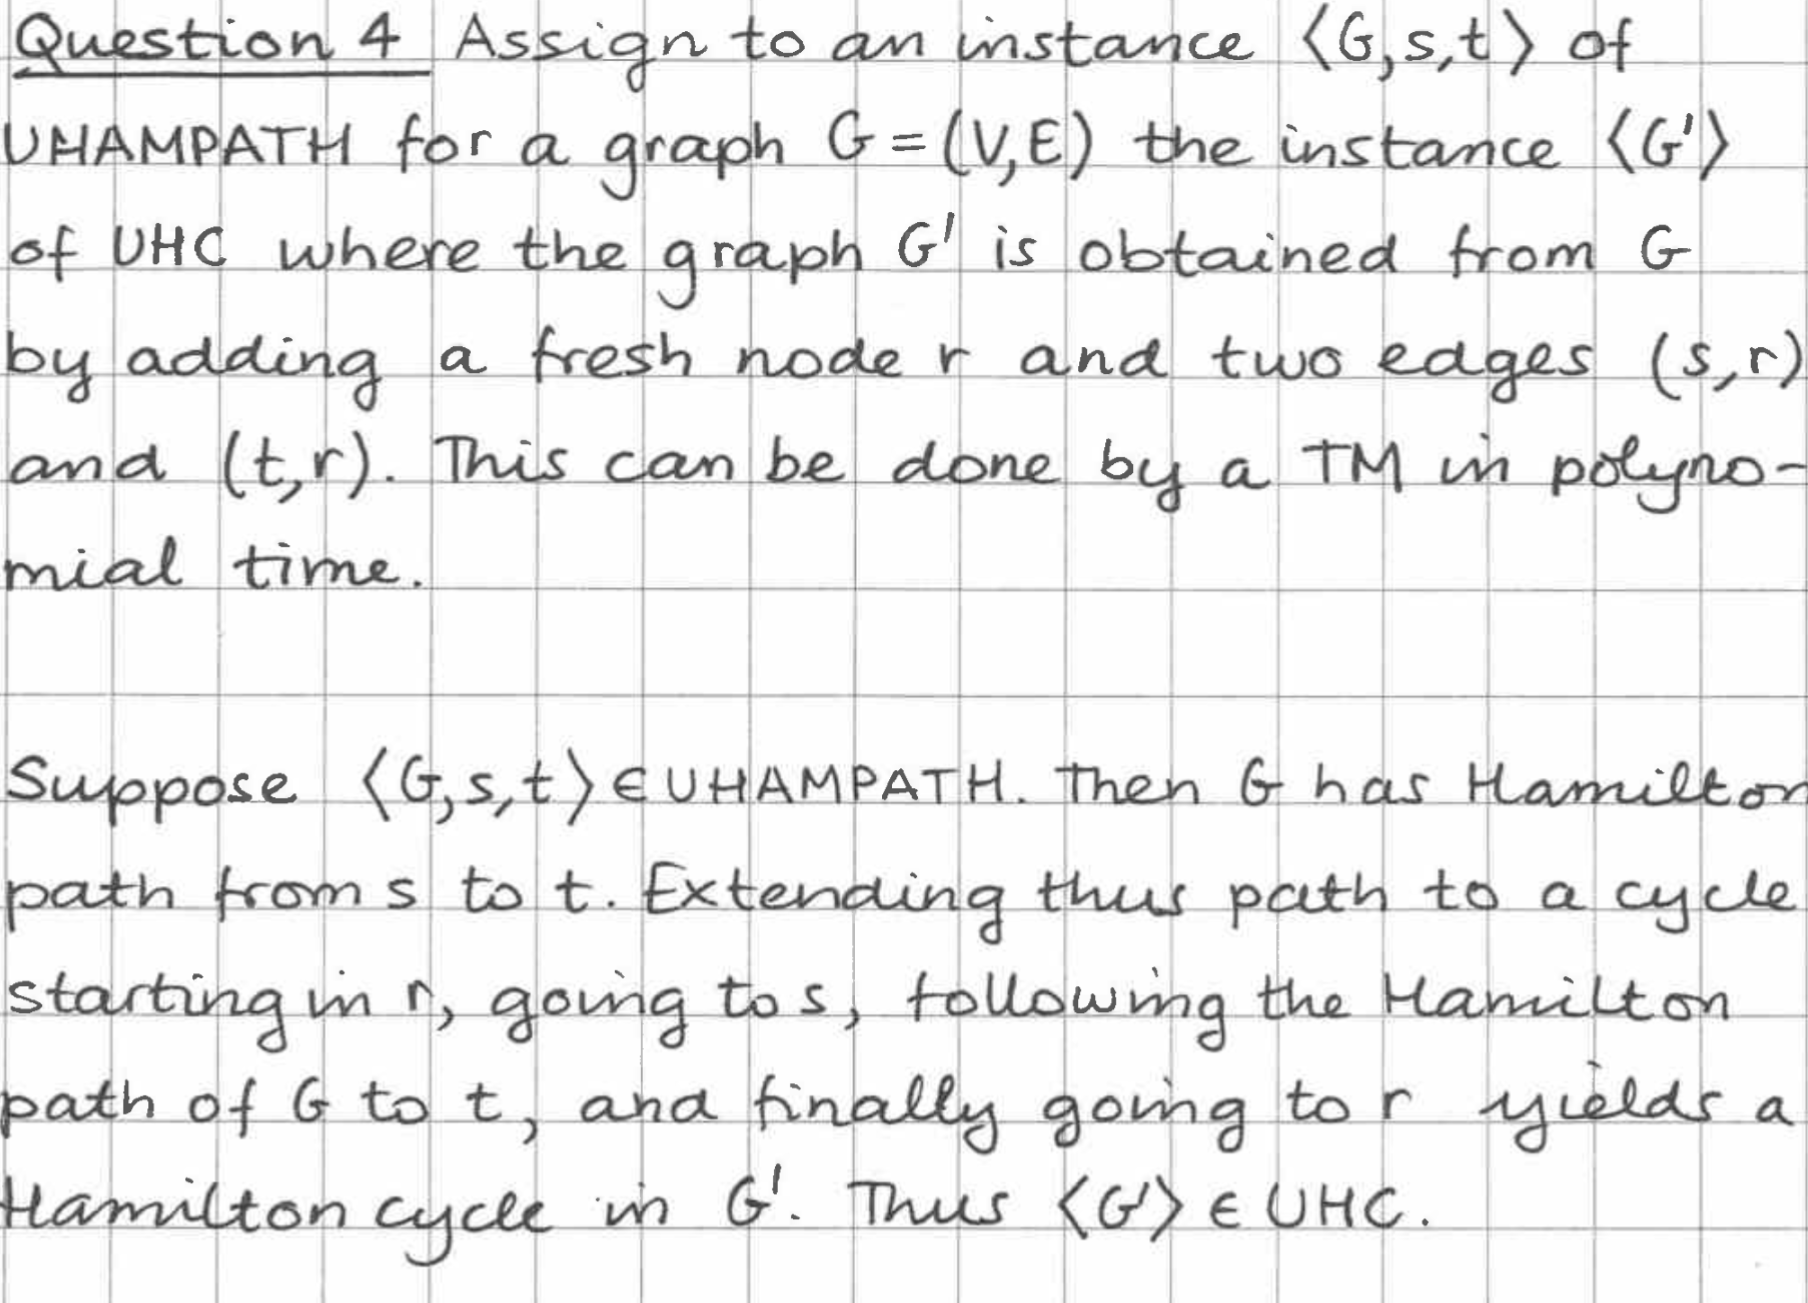 Question 4 Assign to an instance ⟨G,s,t⟩ of
UHAMPATH for a graph G = (V,E) the instance ⟨G'⟩
of UHC where the graph G' is obtained from G
by adding a fresh node r and two edges (s,r)
and (t,r). This can be done by a TM in polyno-
mial time.
Suppose ⟨G,s,t⟩ ∈ UHAMPATH. Then G has Hamilton
path from s to t. Extending thus path to a cycle
starting in r, going to s, following the Hamilton
path of G to t, and finally going to r yields a
Hamilton cycle in G'. Thus ⟨G'⟩ ∈ UHC.